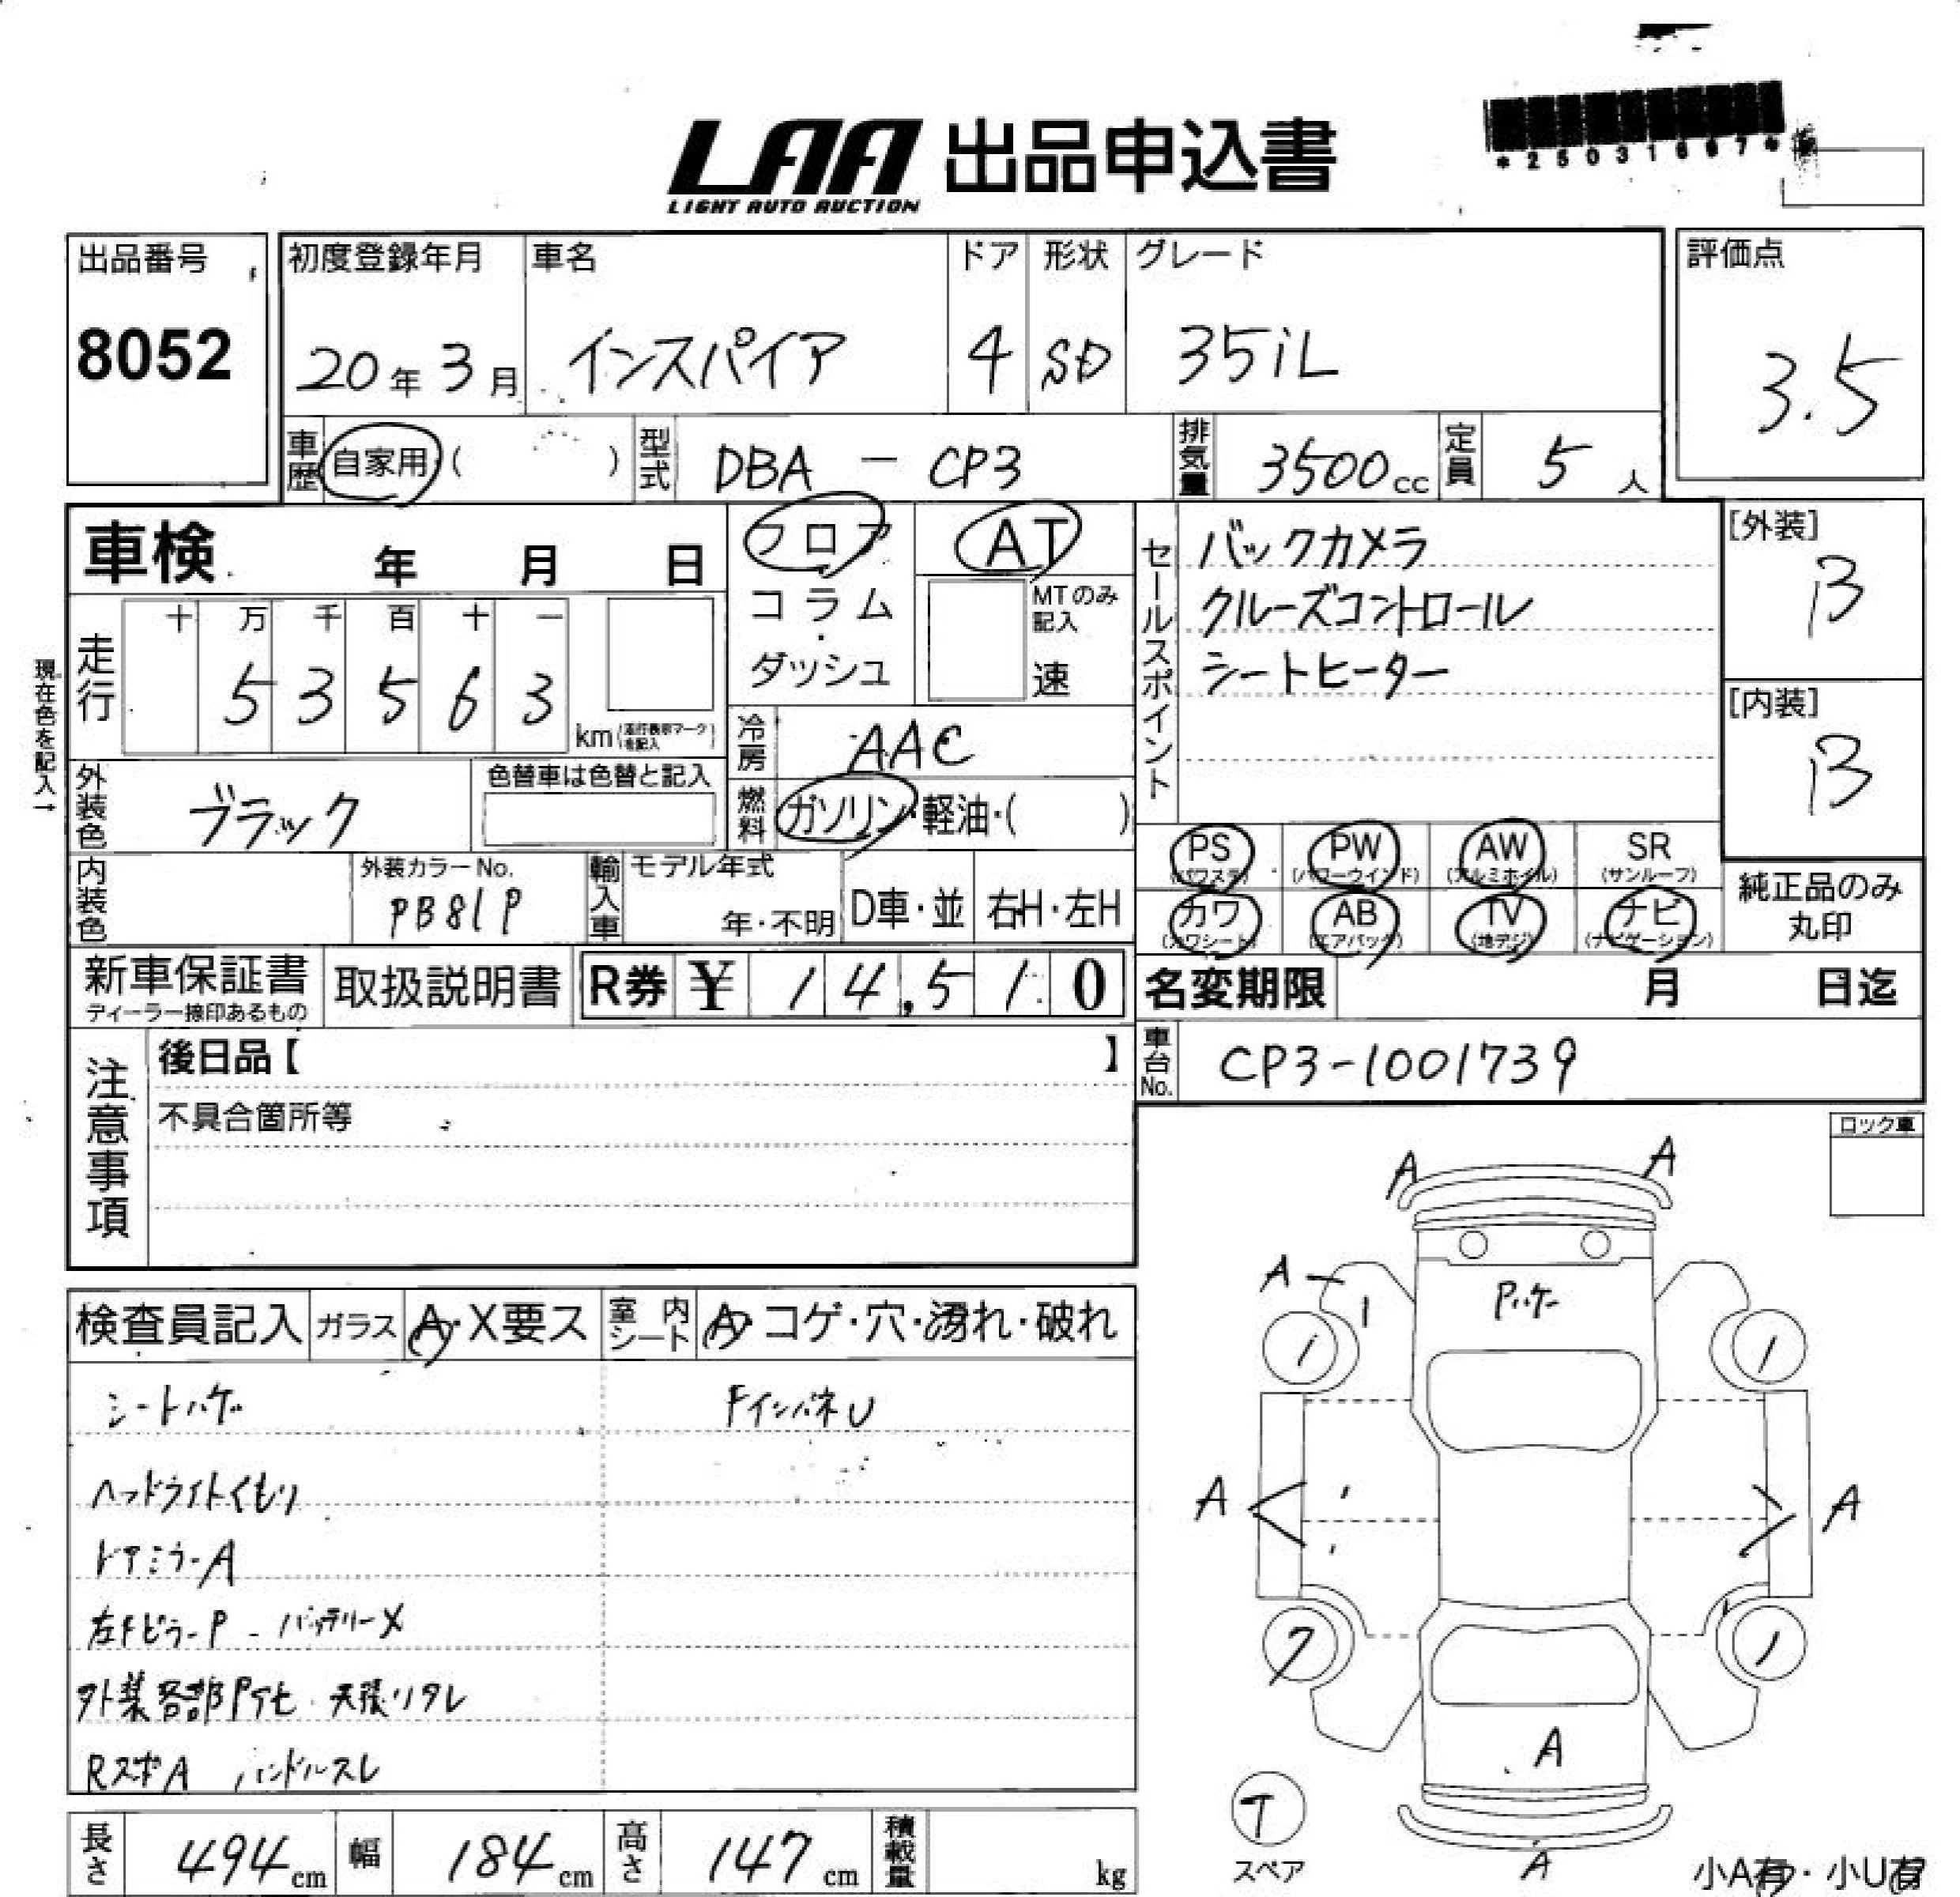 LAA 出品申込書
LIGHT AUTO AUCTION
出品番号
8052
初度登録年月
20年3月
車名
インスパイア
ドア
4
形状
SD
グレード
35iL
評価点
3.5
車歴
自家用 ( )
型式
DBA - CP3
排気量
3500cc
定員
5人
車検 年 月 日
フロア
コラム
・
ダッシュ
AT
MTのみ
記入
速
セールスポイント
バックカメラ
クルーズコントロール
シートヒーター
[外装]
B
[内装]
B
現在色を記入→
走行
十 万 千 百 十 一
5 3 5 6 3
km
冷房
AAC
外装色
ブラック
色替車は色替と記入
燃料
ガソリン・軽油・( )
PS
(パワステ)
PW
(パワーウインド)
AW
(アルミホイル)
SR
(サンルーフ)
カワ
(カワシート)
AB
(エアバック)
TV
(地デジ)
ナビ
(ナビゲーション)
純正品のみ
丸印
内装色
外装カラーNo.
PB81P
輸入車
モデル年式
年・不明
D車・並
右H・左H
新車保証書
ディーラー捺印あるもの
取扱説明書
R券 ¥ 14,510
名変期限 月 日迄
注意事項
後日品【 】
不具合箇所等
車台No.
CP3-1001739
ロック車
検査員記入
ガラス
A・X要ス
室内シート
A・コゲ・穴・濡れ・破れ
シートハゲ
FインパネU
ヘッドライトくもり
ドアミラーA
左FピラーP バッテリーX
外装各部P劣化 天張リタレ
RスポA ハンドルスレ
A A
A
Pハゲ
A A
A
T
スペア
A
小A有・小U有
長さ
494cm
幅
184cm
高さ
147cm
積載量
kg